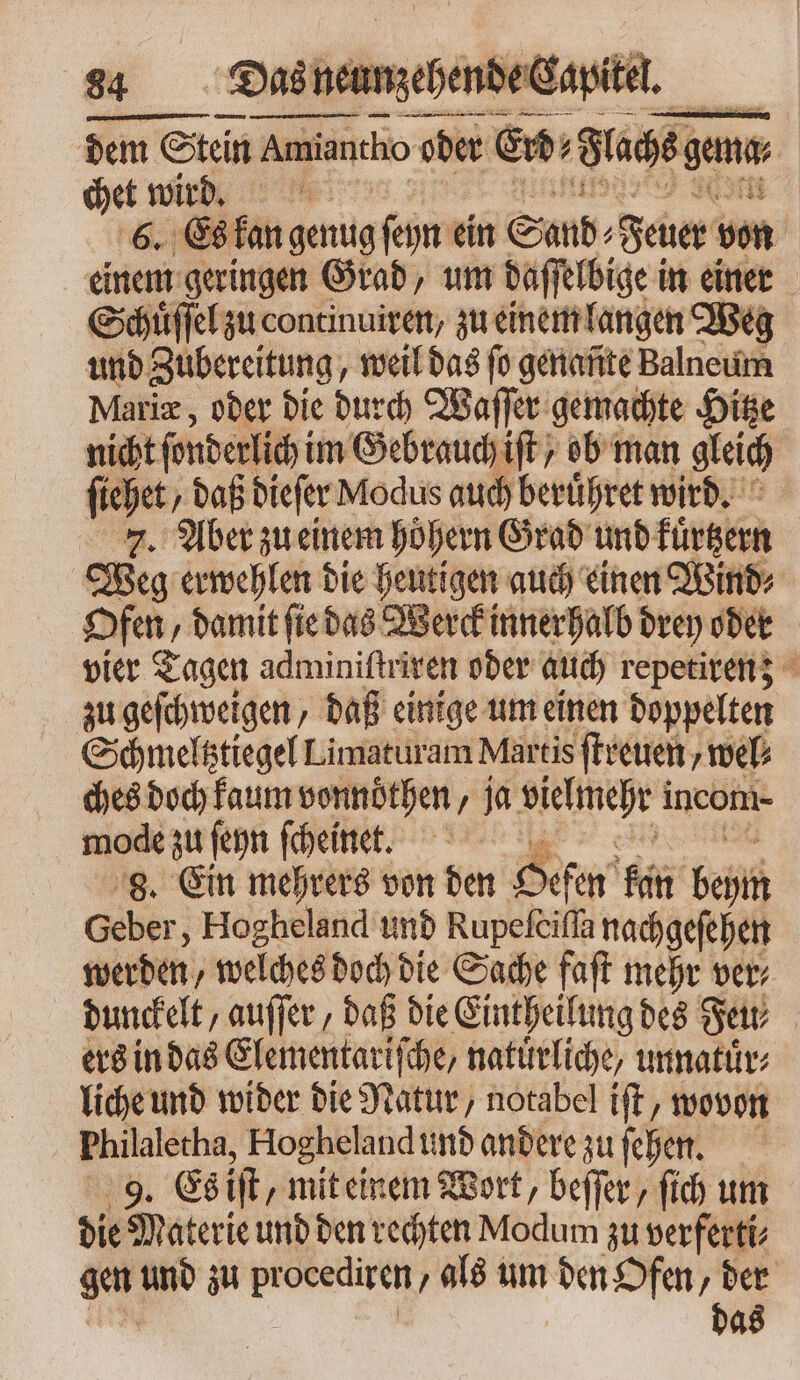 84 Das neunzehende Capitel.
dem Stein Amiantho oder Erd⸗Flachs gema⸗
chet wird.
6. Es kan genug ſeyn ein Sand⸗Feuer von
einem geringen Grad / um daſſelbige in einer
Schuͤſſel zu continuiren / zu einem langen Weg
und Zubereitung / weil das ſo genañte Balneum
Mariæ, oder die durch Waſſer gemachte Hitze
nicht ſonderlich im Gebrauch iſt / ob man gleich
ſiehet / daß dieſer Modus auch beruͤhret wird.
7. Aber zu einem hoͤhern Grad und kuͤrtzern
Weg erwehlen die heutigen auch einen Wind⸗
Ofen / damit ſie das Werck innerhalb drey oder
vier Tagen adminiſtriren oder auch repetiren;
zu geſchweigen / daß einige um einen doppelten
Schmeltztiegel Limaturam Martis ſtreuen / wel⸗
ches doch kaum vonnoͤthen / ja vielmehr incom-
mode zu ſeyn ſcheinet.
8. Ein mehrers von den Oefen kan beym
Geber, Hogheland und Rupeſciſſa nachgeſehen
werden / welches doch die Sache faſt mehr ver⸗
dunckelt / auſſer / daß die Eintheilung des Feu⸗
ers in das Elementariſche / natuͤrliche / unnatuͤr⸗
liche und wider die Natur / notabel iſt / wovon
Philaletha, Hogheland und andere zu ſehen.
9. Es iſt / mit einem Wort / beſſer / ſich um
die Materie und den rechten Modum zu verferti⸗
gen und zu procediren / als um den Ofen / der
das